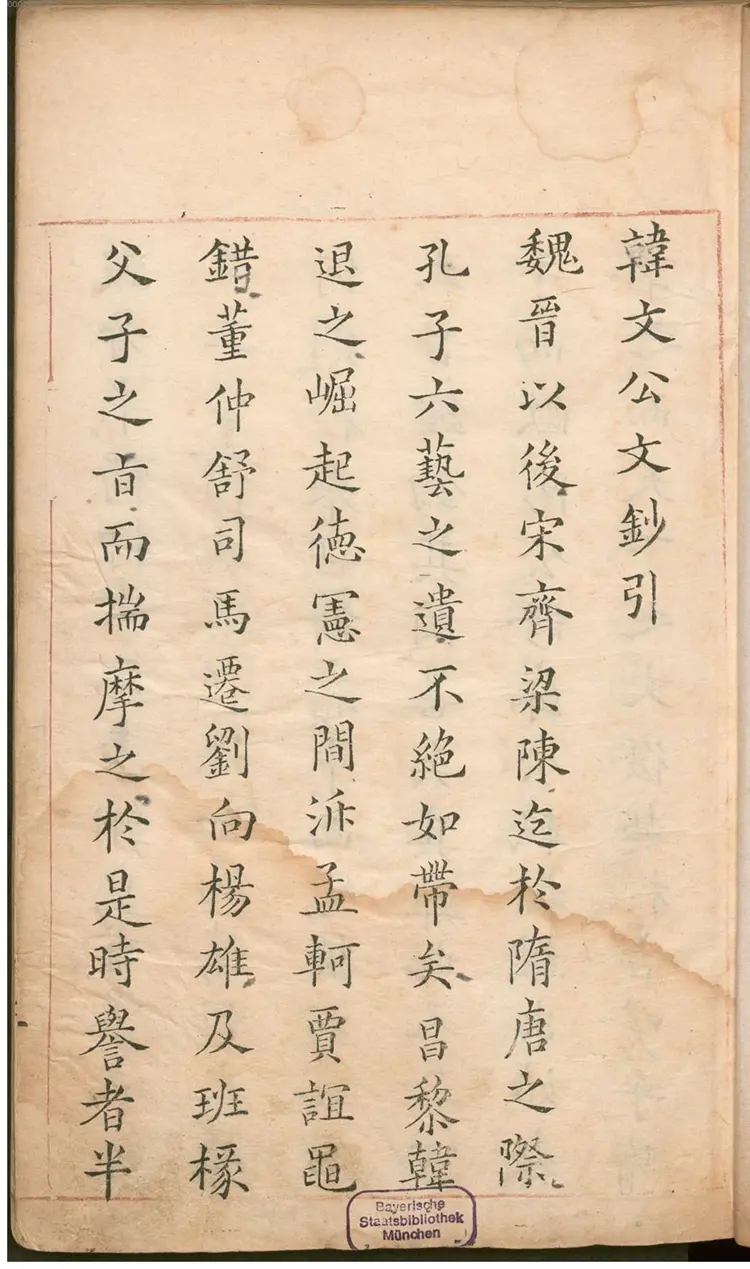 韓文公文鈔引
魏晉以後宋齊梁陳迄扵隋唐之際
孔子六藝之遺不絕如帶矣昌黎韓
退之崛起徳憲之間泝孟軻賈誼鼂
錯董仲舒司馬遷劉向楊雄及班椽
父子之㫖而揣摩之扵是時譽者半
Bayerische
Staatsbibliothek
München